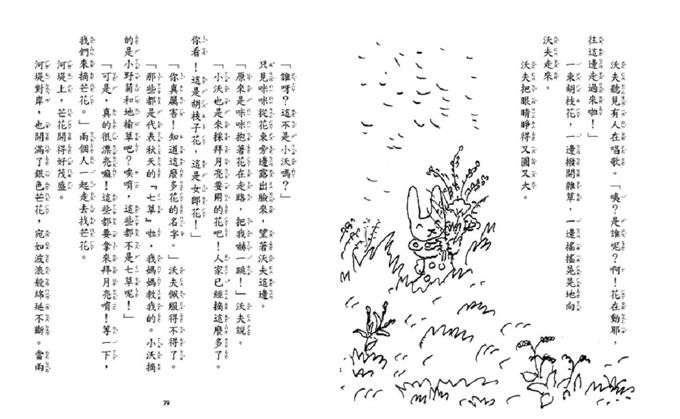 沃夫聽見有人在唱歌。「咦？是誰呢？啊！花在動耶，
往這邊走過來啦！」
一束胡枝花，一邊撥開雜草，一邊搖搖晃晃地向
沃夫走來。
沃夫把眼睛睜得又圓又大。
「誰呀？這不是小沃嗎？」
只見咪咪從花束旁邊露出臉來，望著沃夫這邊。
「原來是咪咪抱著花在走路，把我嚇一跳！」沃夫說。
「小沃也是來採拜月亮要用的花吧！人家已經摘這麼多了。
你看！這是胡枝子花，這是女郎花！」
「你真厲害！知道這麼多花的名字。」沃夫佩服得不得了。
「那些都是代表秋天的『七草』啦，我媽媽教我的。小沃摘
的是小野菊和地榆草吧？唉唷，這些都不是七草呢！」
「可是，真的很漂亮嘛！這些都要拿來拜月亮唷！等一下，
我們來摘芒花。」兩個人一起走去找芒花。
河堤上，芒花開得好茂盛。
河堤對岸，也開滿了銀色芒花，宛如波浪般綿延不斷。當兩
79